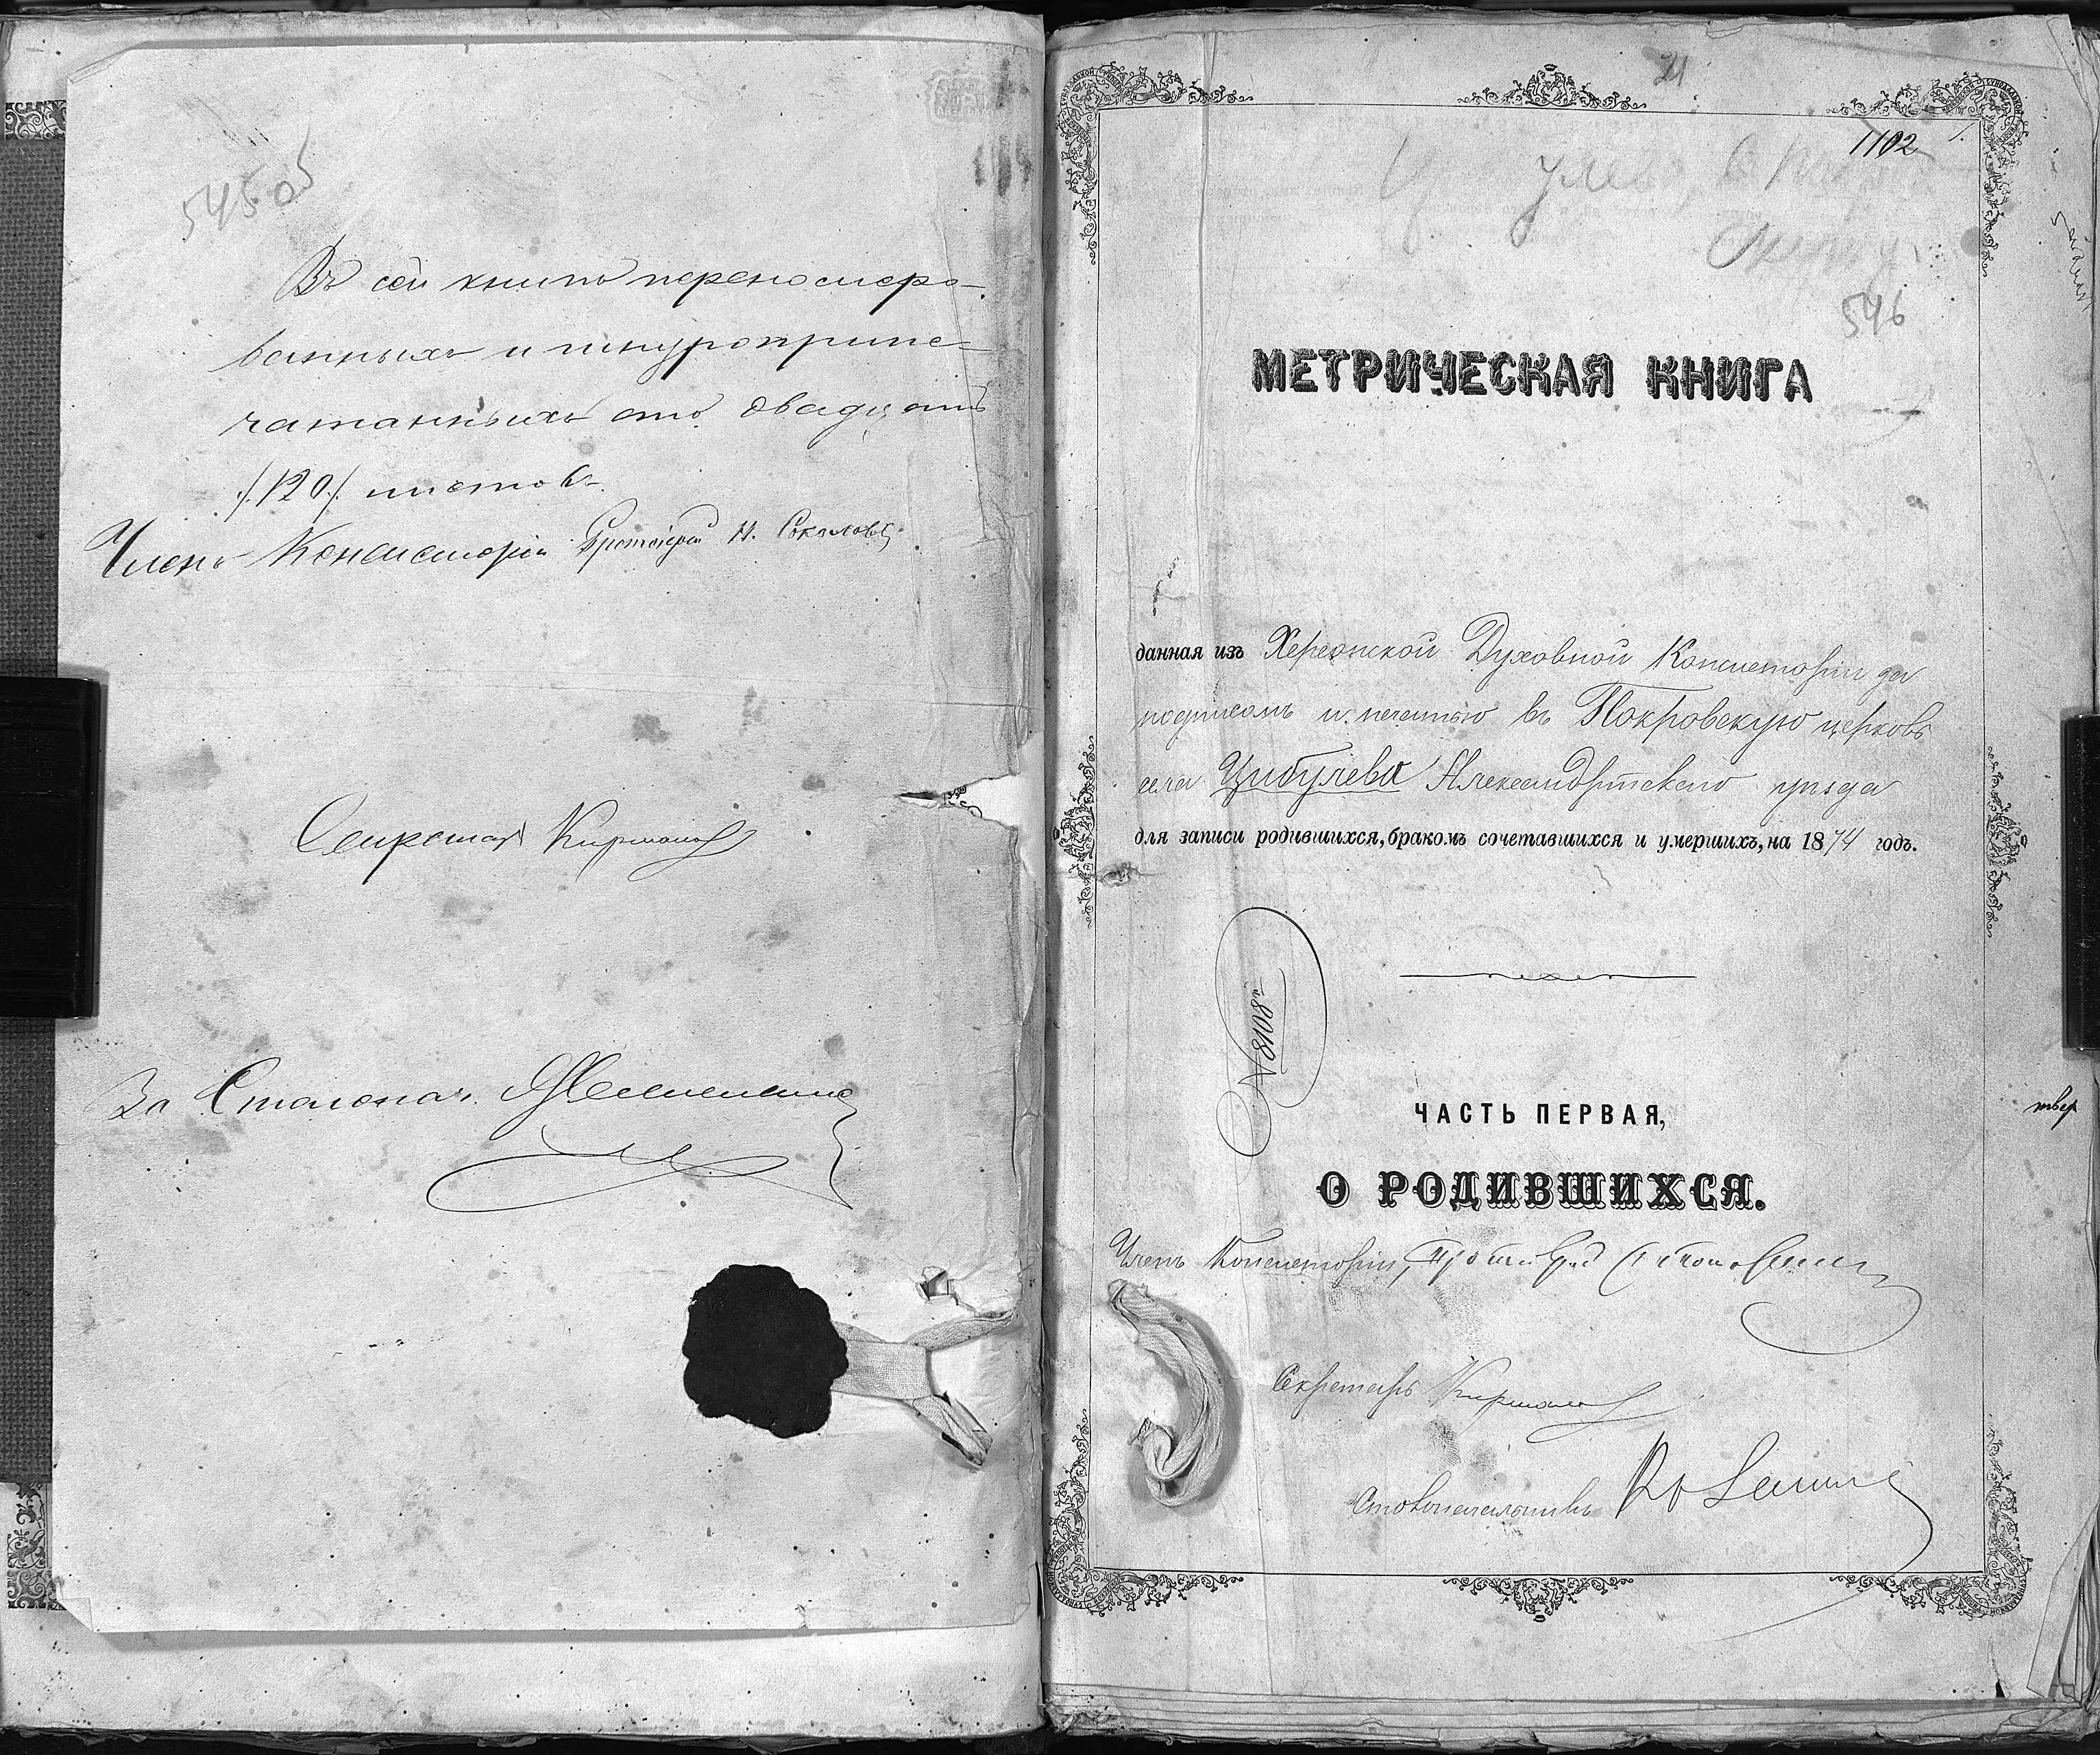 545об
Въ сей книгѣ перенумеро-
ванныхъ и шнуропripe-
чатанныхъ сто двадцать
/120/ листовъ.
Членъ Консисторіи Протоіерей Н. Соколовъ
Секретарь
За Столонач.
21
1102
546
МЕТРИЧЕСКАЯ КНИГА
данная изъ Херсонской Духовной Консисторіи за
подписомъ и печатью въ Покровскую церковь
села Цибулева Александрійскаго уѣзда
для записи родившихся, бракомъ сочетавшихся и умершихъ, на 1874 годъ.
№ 8108
ЧАСТЬ ПЕРВАЯ,
О РОДИВШИХСЯ.
Членъ Консисторіи, Протоіерей
Секретарь
Столоначальникъ